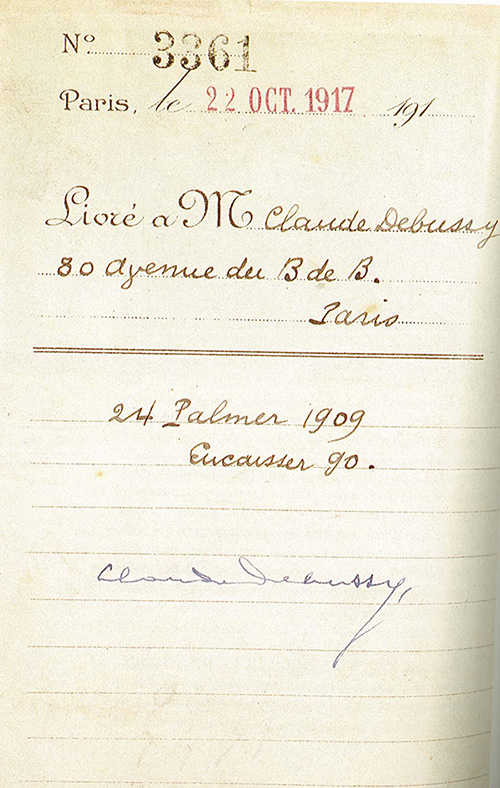 No. 3361
Paris, le 22 OCT. 1917 191
Livré a M Claude Debussy
80 avenue du B de B.
Paris
24 Palmer 1909
Encaisser 90.
Claude Debussy